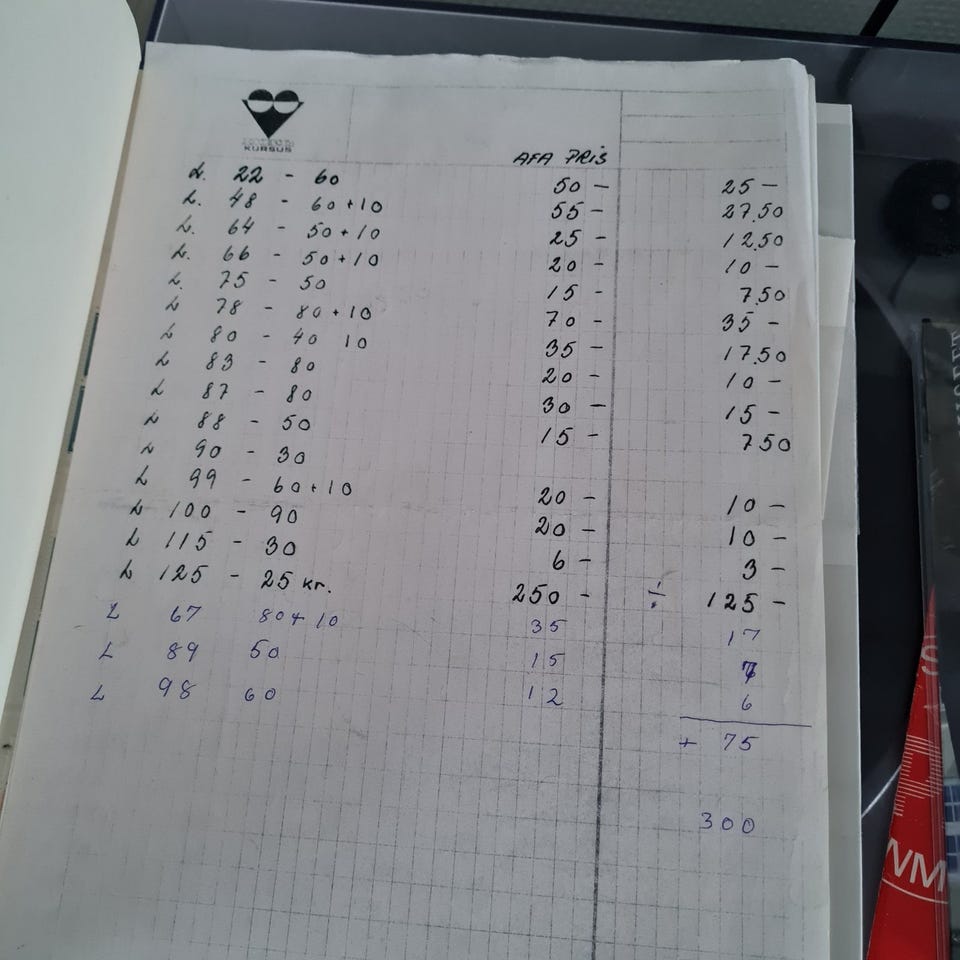 KURSUS
AFA PRIS
L. 22 - 60 50 - 25 -
L. 48 - 60+10 55 - 27,50
L. 64 - 50+10 25 - 12,50
L. 66 - 50+10 20 - 10 -
L. 75 - 50 15 - 7,50
L 78 - 80+10 70 - 35 -
L 80 - 40 10 35 - 17,50
L 83 - 80 20 - 10 -
L 87 - 80 30 - 15 -
L 88 - 50 15 - 750
L 90 - 30
L 99 - 60+10 20 - 10 -
L 100 - 90 20 - 10 -
L 115 - 30 6 - 3 -
L 125 - 25 kr. 250 - ÷ 125 -
L 67 80+10 35 17
L 89 50 15
L 98 60 12 6
+ 75
300
NM